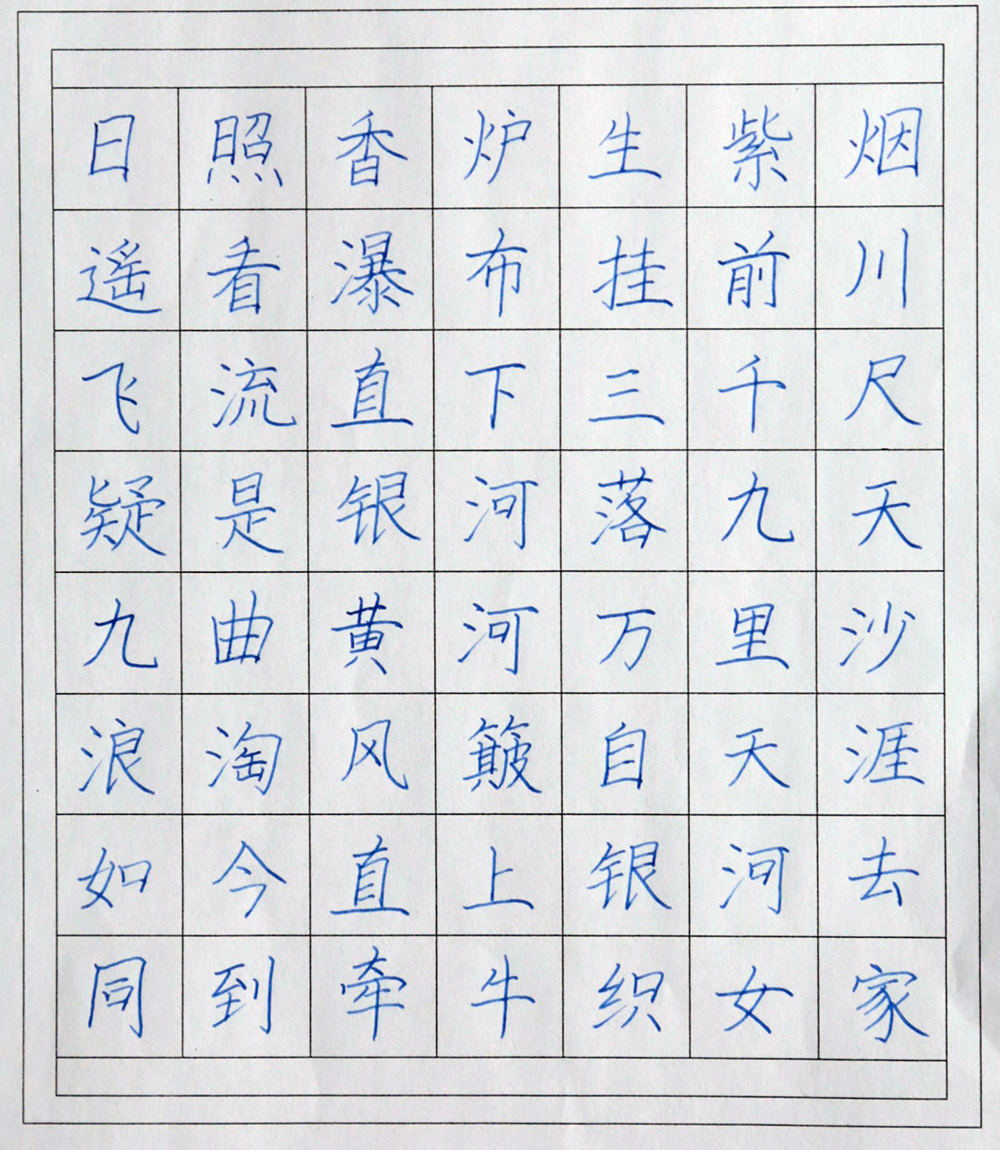 日照香炉生紫烟
遥看瀑布挂前川
飞流直下三千尺
疑是银河落九天
九曲黄河万里沙
浪淘风簸自天涯
如今直上银河去
同到牵牛织女家